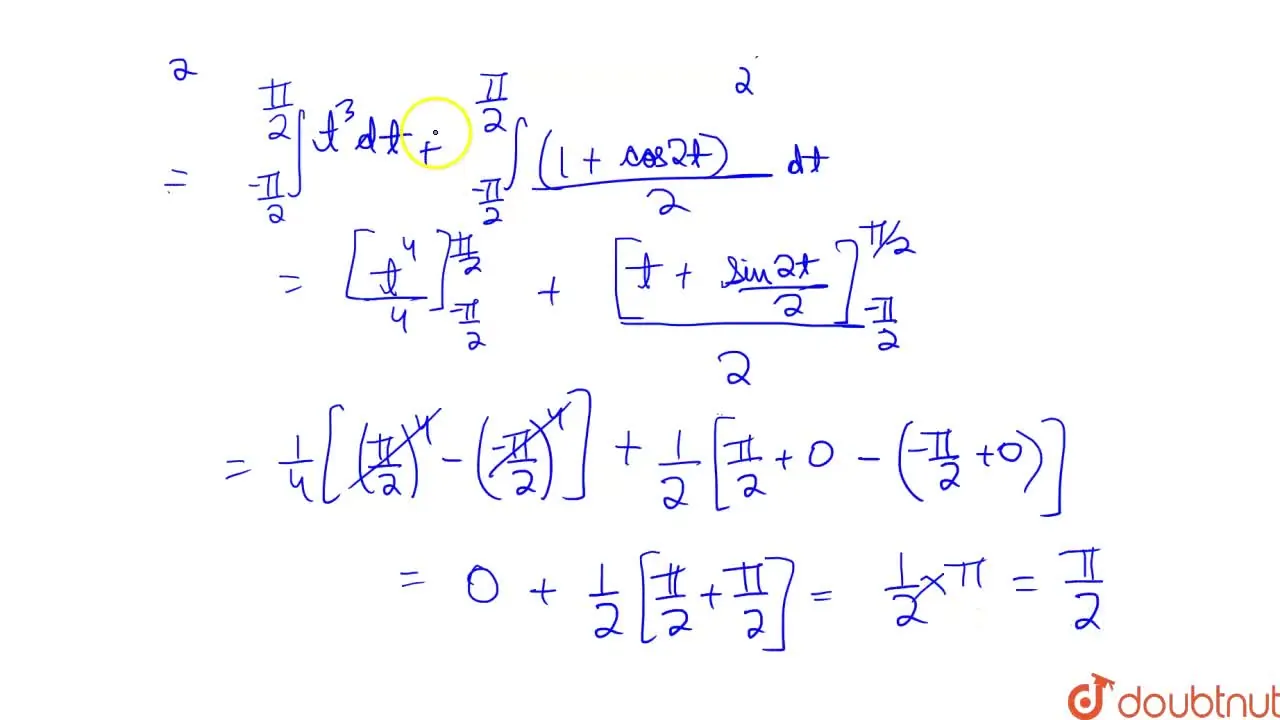 2 2
= ∫_{-π/2}^{π/2} t³ dt + ∫_{-π/2}^{π/2} (1 + cos2t)/2 dt
= [t⁴/4]_{-π/2}^{π/2} + [t + sin2t/2]_{-π/2}^{π/2}/2
= 1/4 [(π/2)⁴ - (-π/2)⁴] + 1/2 [π/2 + 0 - (-π/2 + 0)]
= 0 + 1/2 [π/2 + π/2] = 1/2 × π = π/2
doubtnut